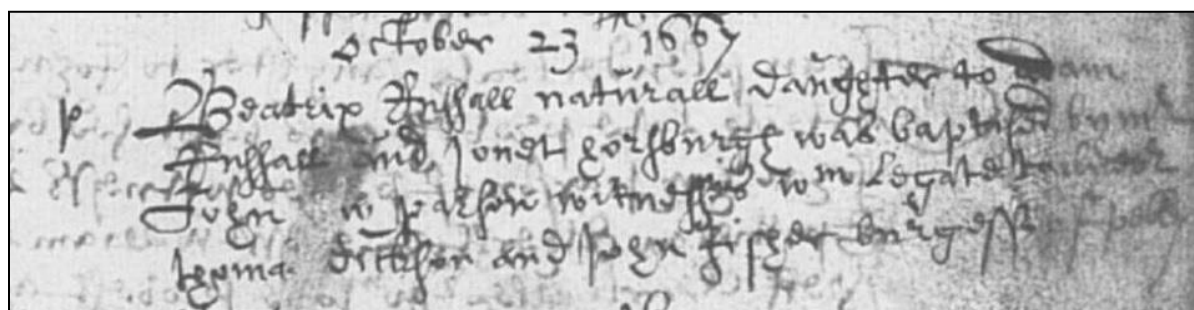 october 23 1667
p Beatrix Russall naturall daughter to adam
Russall and Jonet horsburgh was baptised by mr
John parson witnesses wm Legate
thoma dickson and John fisher burgess